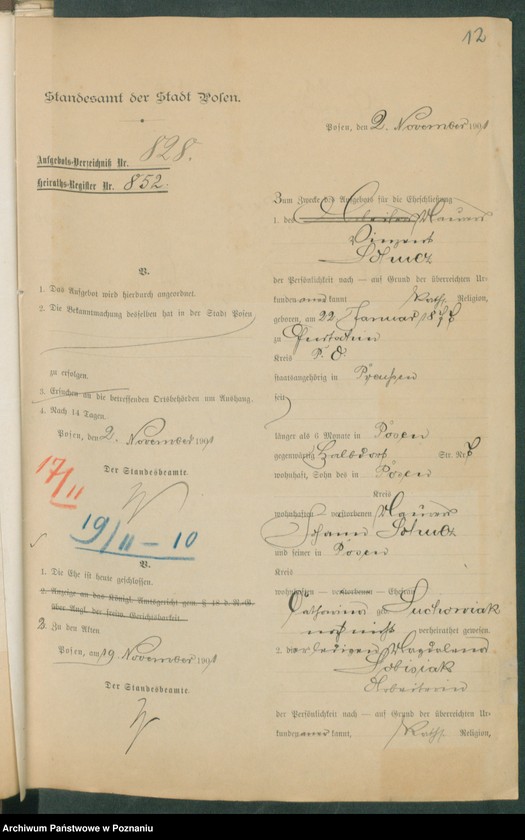 12
Standesamt der Stadt Posen.
Posen, den 2. November 1901
Aufgebots-Verzeichniß Nr. 828.
Heiraths-Register Nr. 852.
Zum Zwecke des Aufgebots für die Eheschließung
1. des Maurer
Vinzent
der Persönlichkeit nach — auf Grund der überreichten Ur-
kunden kannt, Kath. Religion,
geboren, am 22 Januar 187
zu
Kreis P. O.
staatsangehörig in Preußen
seit
länger als 6 Monate in Posen
gegenwärtig Halbdorf Str. Nr.
wohnhaft, Sohn des in Posen
Kreis
wohnhaften — verstorbenen Maurer
Johann
und seiner in Posen
Kreis
wohnhaften — verstorbenen — Ehefrau
Catharina geb. Suchowiak
noch nicht verheirathet gewesen.
2. die ledigen Magdalena
Sobisiak
Arbeiterin
der Persönlichkeit nach — auf Grund der überreichten Ur-
kunden kannt, Kath. Religion,
V.
1. Das Aufgebot wird hierdurch angeordnet.
2. Die Bekanntmachung desselben hat in der Stadt Posen
zu erfolgen.
3. Ersuchen an die betreffenden Ortsbehörden um Aushang.
4. Nach 14 Tagen.
Posen, den 2. November 1901
Der Standesbeamte.
17/11
19/11 — 10
V.
1. Die Ehe ist heute geschlossen.
2. Anzeige an das Königl. Amtsgericht gem. § 48 d. R.-G.
über Angl. der freiw. Gerichtsbarkeit.
2. Zu den Akten
Posen, am 19 November 1901
Der Standesbeamte.
Archiwum Państwowe w Poznaniu